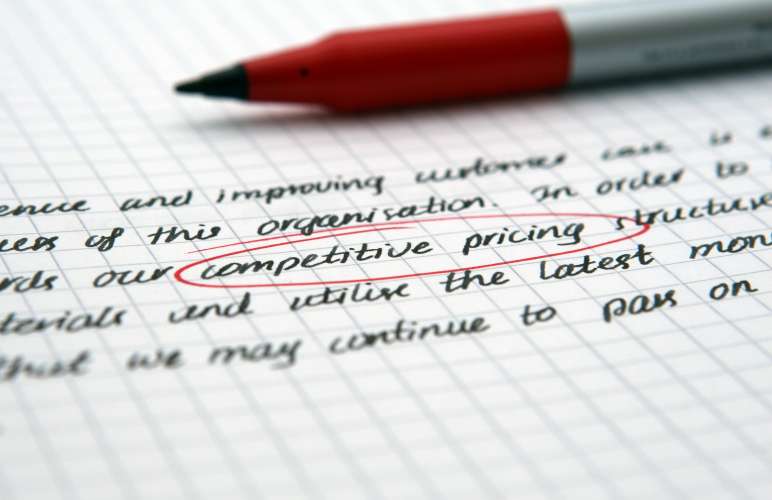 ence and improving customer care is
ness of this organisation. In order to
rds our competitive pricing structure
terials and utilise the latest mon
that we may continue to pass on